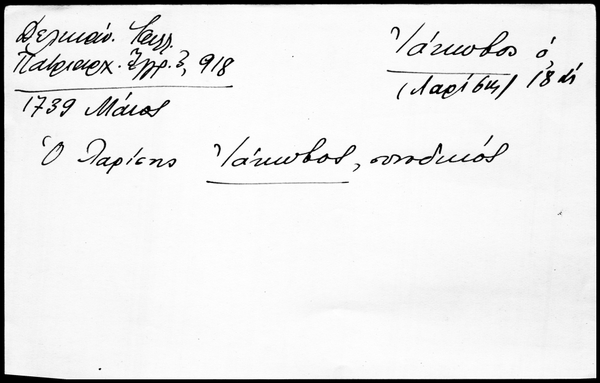 Δελικάν. Καλλ.
Πατριαρχ. Ἔγγρ. 3, 918
1739 Μάιος
Ἰάκωβος ὁ,
(Λαρίσης) 18 αἰ
Ὁ Λαρίσης Ἰάκωβος, συνοδικός